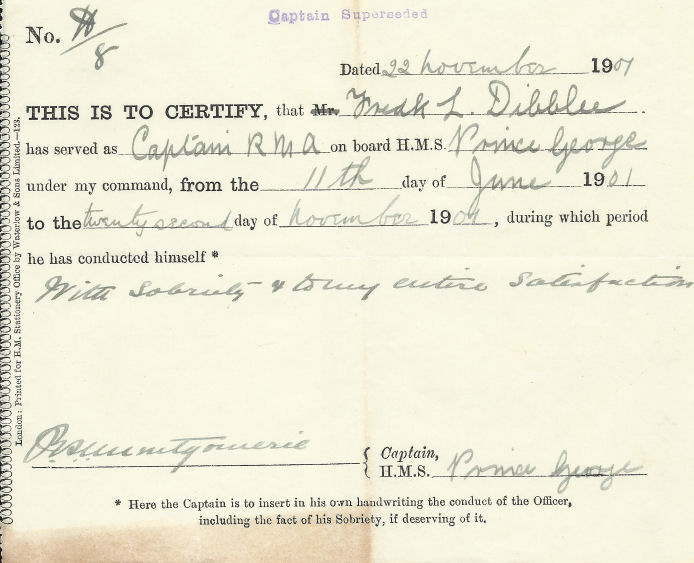 Captain Superseded
No. H/8
Dated 22 November 1901
THIS IS TO CERTIFY, that Mr. Fredk L. Dibblee.
has served as Captain RMA on board H.M.S. Prince George
under my command, from the 11th day of June 1901
to the twenty second day of November 1901, during which period
he has conducted himself *
With sobriety & to my entire satisfaction
Montgomerie
Captain,
H.M.S. Prince George
* Here the Captain is to insert in his own handwriting the conduct of the Officer,
including the fact of his Sobriety, if deserving of it.
London: Printed for H.M. Stationery Office by Waterlow & Sons Limited.—123.